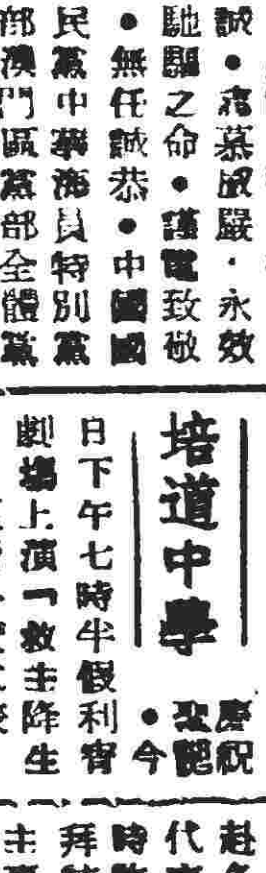 誠●肅慕威嚴·永效
馳驅之命●謹電致敬
●無任誠恭●中國國
民黨中華海員特別黨
部澳門區黨部全體黨
培道中學
慶祝
聖誕
●今
日下午七時半假利宵
劇場上演「救主降生
赴
代
時
拜
主